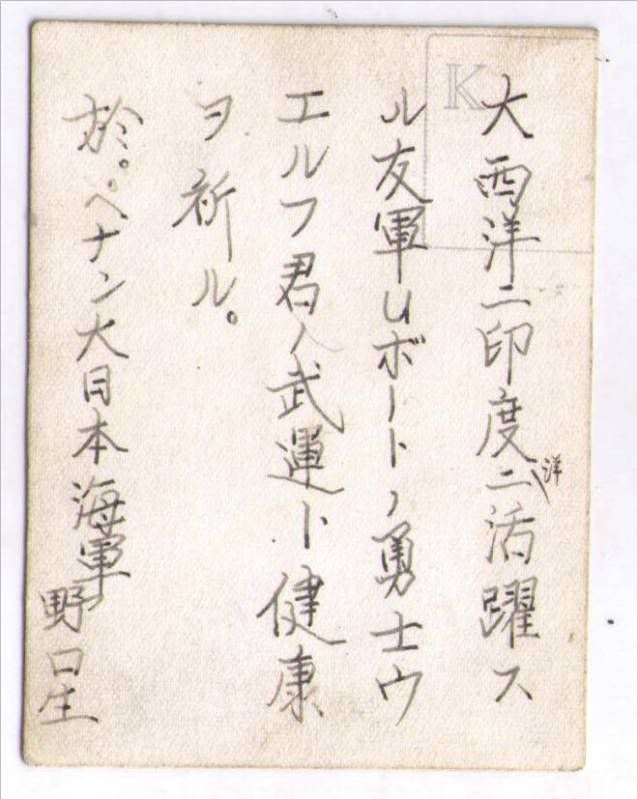 大西洋ニ印度洋ニ活躍ス
ル友軍Uボートノ勇士ウ
エルフ君ノ武運ト健康
ヲ祈ル。
於。ペナン大日本海軍
野口生
K